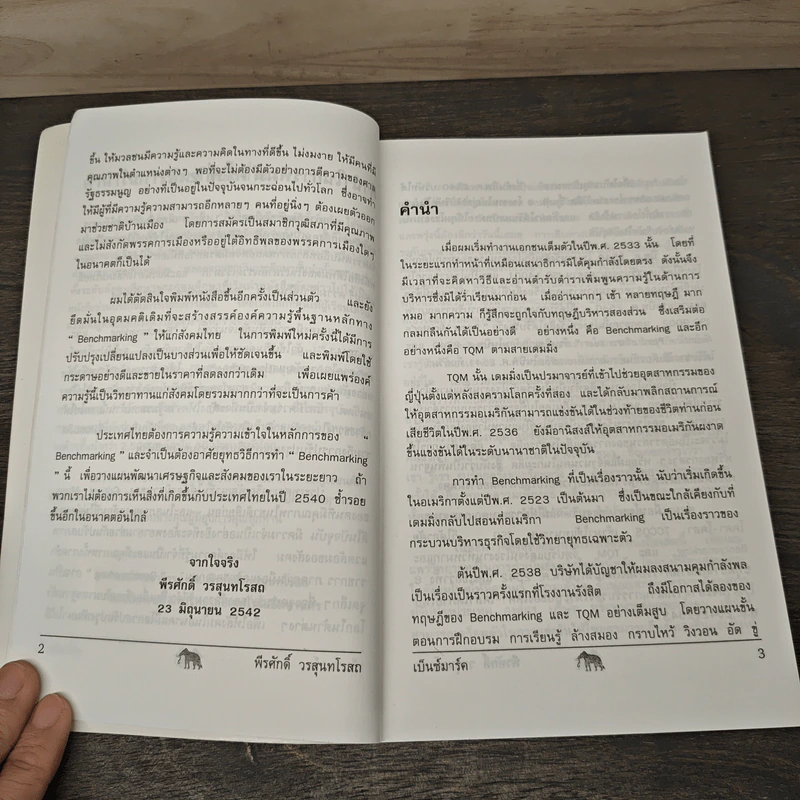 ขึ้น ให้มวลชนมีความรู้และความคิดในทางที่ดีขึ้น ไม่งมงาย ให้มีคนที่มี
คุณภาพในตำแหน่งต่างๆ พอที่จะไม่ต้องมีตัวอย่างการตีความของศาล
รัฐธรรมนูญ อย่างที่เป็นอยู่ในปัจจุบันจนกระฉ่อนไปทั่วโลก ซึ่งอาจทำ
ให้มีผู้ที่มีความรู้ความสามารถอีกหลายๆ คนที่อยู่นิ่งๆ ต้องเผยตัวออก
มาช่วยชาติบ้านเมือง โดยการสมัครเป็นสมาชิกวุฒิสภาที่มีคุณภาพ
และไม่สังกัดพรรคการเมืองหรืออยู่ใต้อิทธิพลของพรรคการเมืองใดๆ
ในอนาคตก็เป็นได้
ผมได้ตัดสินใจพิมพ์หนังสือขึ้นอีกครั้งเป็นส่วนตัว และยัง
ยึดมั่นในอุดมคติเดิมที่จะสร้างสรรค์องค์ความรู้พื้นฐานหลักทาง
“ Benchmarking ” ให้แก่สังคมไทย ในการพิมพ์ใหม่ครั้งนี้ได้มีการ
ปรับปรุงเปลี่ยนแปลงเป็นบางส่วนเพื่อให้ชัดเจนขึ้น และพิมพ์โดยใช้
กระดาษอย่างดีและขายในราคาที่ลดลงกว่าเดิม เพื่อเผยแพร่องค์
ความรู้นี้เป็นวิทยาทานแก่สังคมโดยรวมมากกว่าที่จะเป็นการค้า
ประเทศไทยต้องการความรู้ความเข้าใจในหลักการของ “
Benchmarking ” และจำเป็นต้องอาศัยยุทธวิธีการทำ “ Benchmarking
” นี้ เพื่อวางแผนพัฒนาเศรษฐกิจและสังคมของเราในระยะยาว ถ้า
พวกเราไม่ต้องการเห็นสิ่งที่เกิดขึ้นกับประเทศไทยในปี 2540 ซ้ำรอย
ขึ้นอีกในอนาคตอันใกล้
จากใจจริง
พีรศักดิ์ วรสุนทโรสถ
23 มิถุนายน 2542
2
พีรศักดิ์ วรสุนทโรสถ
คำนำ
เมื่อผมเริ่มทำงานเอกชนเต็มตัวในปีพ.ศ. 2533 นั้น โดยที่
ในระยะแรกทำหน้าที่เหมือนเสนาธิการมิได้คุมกำลังโดยตรง ดังนั้นจึง
มีเวลาที่จะคิดหาวิธีและอ่านตำรับตำราเพิ่มพูนความรู้ในด้านการ
บริหารซึ่งมิได้ร่ำเรียนมาก่อน เมื่ออ่านมากๆ เข้า หลายทฤษฎี มาก
หมอ มากความ ก็รู้สึกจะถูกใจกับทฤษฎีบริหารสองส่วน ซึ่งเสริมต่อ
กลมกลืนกันได้เป็นอย่างดี อย่างหนึ่ง คือ Benchmarking และอีก
อย่างหนึ่งคือ TQM ตามสายเดมมิ่ง
TQM นั้น เดมมิ่งเป็นปรมาจารย์ที่เข้าไปช่วยอุตสาหกรรมของ
ญี่ปุ่นตั้งแต่หลังสงครามโลกครั้งที่สอง และได้กลับมาพลิกสถานการณ์
ให้อุตสาหกรรมอเมริกันสามารถแข่งขันได้ในช่วงท้ายของชีวิตท่านก่อน
เสียชีวิตในปีพ.ศ. 2536 ยังมีอานิสงส์ให้อุตสาหกรรมอเมริกันผงาด
ขึ้นแข่งขันได้ในระดับนานาชาติในปัจจุบัน
การทำ Benchmarking ที่เป็นเรื่องราวนั้น นับว่าเริ่มเกิดขึ้น
ในอเมริกาตั้งแต่ปีพ.ศ. 2523 เป็นต้นมา ซึ่งเป็นขณะใกล้เคียงกับที่
เดมมิ่งกลับไปสอนที่อเมริกา Benchmarking เป็นเรื่องราวของ
กระบวนบริหารธุรกิจโดยใช้วิทยายุทธเฉพาะตัว
ต้นปีพ.ศ. 2538 บริษัทได้บัญชาให้ผมลงสนามคุมกำลังพล
เป็นเรื่องเป็นราวครั้งแรกที่โรงงานรังสิต ถึงมีโอกาสได้ลองของ
ทฤษฎีของ Benchmarking และ TQM อย่างเต็มสูบ โดยวางแผนขั้น
ตอนการฝึกอบรม การเรียนรู้ ล้างสมอง กราบไหว้ วิงวอน อัด ขู่
เบ็นช์มาร์ค
3